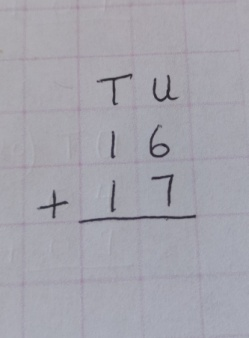 T U
1 6
+ 1 7